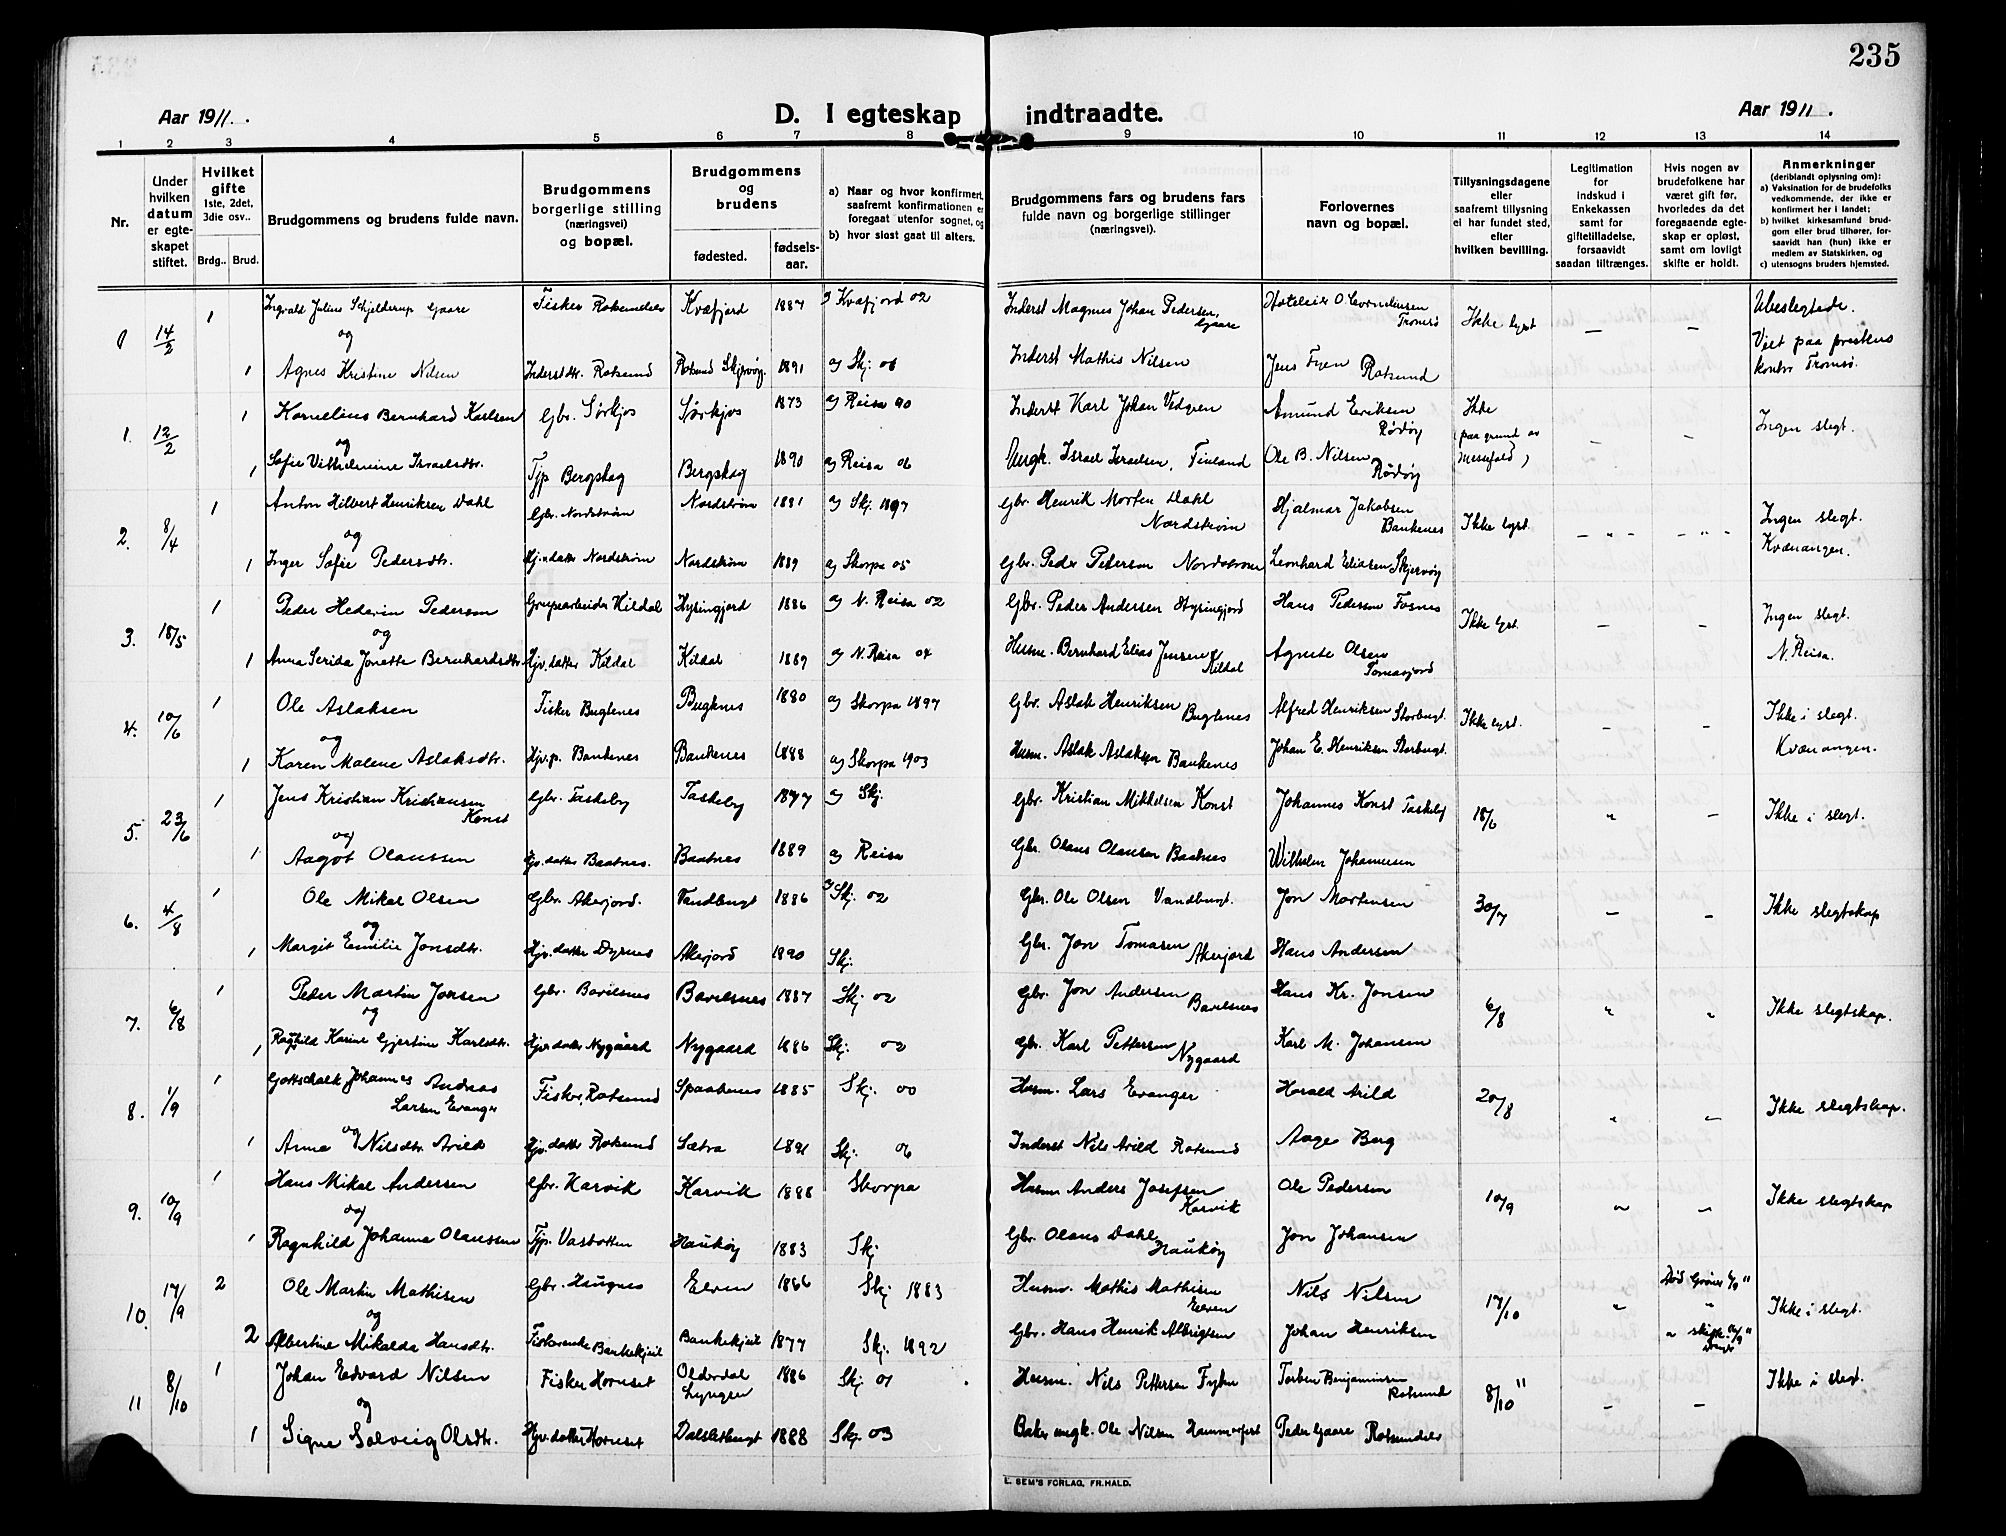 235
Aar 1911.
D. I egteskap indtraadte.
Aar 1911.
1 2 3 4 5 6 7 8 9 10 11 12 13 14
Nr.
Under hvilken datum er egteskapet stiftet.
Hvilket gifte 1ste, 2det, 3die osv..
Brdg.. Brud.
Brudgommens og brudens fulde navn.
Brudgommens borgerlige stilling (næringsvei) og bopæl.
Brudgommens og brudens
fødested.
fødselsaar.
a) Naar og hvor konfirmert, saafremt konfirmationen er foregaat utenfor sognet, og
b) hvor sidst gaat til alters.
Brudgommens fars og brudens fars fulde navn og borgerlige stillinger (næringsvei).
Forlovernes navn og bopæl.
Tillysningsdagene eller saafremt tillysning ei har fundet sted, efter hvilken bevilling.
Legitimation for indskud i Enkekassen samt for giftetilladelse, forsaavidt saadan tiltrænges.
Hvis nogen av brudefolkene har været gift før, hvorledes da det foregaaende egteskap er opløst, samt om lovligt skifte er holdt.
Anmerkninger (deriblandt oplysning om):
a) Vaksination for de brudefolks vedkommende, der ikke er konfirmert her i landet;
b) hvilket kirkesamfund brudgom eller brud tilhører, forsaavidt han (hun) ikke er medlem av Statskirken, og
c) utensogns bruders hjemsted.
14/2 1 Ingvald Julius Schjelderup Gaare Fisker Rotsundelv Kvæfjord 1887 Kvæfjord 02 Inderst Magnus Johan Pedersen Gaare Hoteleier O Corneliusen Tromsø Ikke lyst – – Ubeslegtede.
og
1 Agnes Kristine Nilsen Inderstdtr. Rotsund Rotsund Skjervøy. 1891 Skj. 06 Inderst Mathis Nilsen Jens Fyen Rotsund Viet paa prestens kontor Tromsø.
1. 12/2 1 Kornelius Bernhard Karlsen Gbr. Sørkjos Sørkjos 1873 Reisa 90 Inderst Karl Johan Vedgren Amund Eriksen Rødøy Ikke (paa grund av messefald) – – Ingen slegt.
og
1 Sofie Vilhelmine Israelsdtr. Tjp Bergskog Bergskog 1890 Reisa 06 Ungk. Israel Israelsen, Finland Ole B. Nilsen Rødøy
2. 8/4 1 Anton Hilbert Henriksen Dahl Gbr. Nordstrøm Nordstrøm 1881 Skj. 1897 Gbr. Henrik Morten Dahl Nordstrøm Hjalmar Jakobsen Bankenes Ikke lyst. – – Ingen slegt.
og
1 Inger Sofie Pedersdtr. Hjv. datter Nordstrøm Nordstrøm 1889 Skorpa 05 Gbr. Peder Pederson Nordstrøm Leonhard Eliasen Skjervøy Kvænangen.
3. 18/5 1 Peder Hedevin Pederson Grupearbeider Kildal Hysingjord 1886 N. Reisa 02 Gbr. Peder Andersen Hysingjord Hans Pedersen Fosnes Ikke lyst. – – Ingen slegt.
og
1 Anna Serida Jonette Bernhardsdtr. Hjv. datter Kildal Kildal 1889 N. Reisa 04 Husm. Bernhard Elias Jensen Kildal Agnete Olsen Tomasjord N. Reisa.
4. 10/6 1 Ole Aslaksen Fisker Bugtenes Bugtnes 1880 Skorpa 1897 Gbr. Aslak Henriksen Bugtenes Alfred Henriksen Storbugt. Ikke lyst. – – Ikke i slegt.
og
1 Karen Malene Aslaksdtr. Hjv. p. Bankenes Bankenes 1888 Skorpa 1903 Husm. Aslak Aslaksen Bankenes Johan E. Henriksen Storbugt. Kvænangen.
5. 23/6 1 Jens Kristian Kristiansen Konst Gbr. Taskeby Taskeby 1877 Skj. Gbr. Kristian Mikkelsen Konst Johannes Konst Taskeby 18/6 " – Ikke i slegt.
og
1 Aagot Olaussen Hjv. datter Baatnes. Baatnes 1889 Reisa Gbr. Olaus Olausen Baatnes Wilhelm Johannesen
6. 4/8 1 Ole Mikal Olsen Gbr. Akerjord. Vandbugt 1886 Skj. 02 Gbr. Ole Olsen Vandbugt. Jon Mortensen 30/7 – – Ikke slegtskap
og
1 Margit Emilie Jonsdtr. Hjv. datter Dyrnes Akerjord 1890 Skj. Gbr. Jon Tomasen Akerjord Hans Andersen
7. 6/8 1 Peder Martin Jonsen Gbr. Bavelsnes Bavelsnes 1887 Skj. 02 Gbr. Jon Andersen Bavelsnes Hans Kr. Jonsen 6/8 " " Ikke slegtskap.
og
1 Ragnhild Karine Gjertine Karlsdtr. Hjv. datter Nygaard Nygaard 1886 Skj. 02 Gbr. Karl Pettersen Nygaard Karl M. Johansen
8. 1/9 1 Gottschalk Johannes Andreas Larsen Evanger Fisker, Rotsund Spaakenes 1885 Skj. 00 Husm. Lars Evanger Harald Arild 20/8 " – Ikke slegtskap.
og
1 Anna Nilsdtr. Arild Hjv. datter Rotsund Sætra 1891 Skj. 06 Inderst Nils Arild Rotsund Aage Berg
9. 10/9 1 Hans Mikal Andersen Gbr. Karvik Karvik 1888 Skorpa Husm Anders Josefsen Karvik Ole Pedersen 10/9 " " Ikke slegtskap
og
1 Ragnhild Johanna Olaussen Tjp. Vasbotten Haukøy 1883 Skj Gbr. Olaus Dahl Haukøy Jon Johansen
10. 17/9 2 Ole Martin Mathisen Gbr. Haugnes Elven 1866 Skj. 1883 Husm. Mathis Mathisen Elven Nils Nilsen 17/10 " Død Ikke i slegt.
og
2 Albertine Mikalda Hansdtr. Fiskerenke Bankekjeil Bankekjeil 1877 Skj. 1892 Gbr. Hans Henrik Albrigtsen Johan Henriksen
11 8/10 1 Johan Edvard Nilsen Fisker Hornset Olderdal Lyngen 1886 Skj 01 Husm. Nils Pettersen Johan Torben Benjaminsen Rotsund 8/10 – – Ikke i slegt.
og
1 Signe Solveig Olsdtr. Hjv. datter Hornset Dalsletbugt 1888 Skj. 03 Baker ungk. Ole Nilsen Hammerfest Peder Gaare Rotsundelv
E. SEM'S FORLAG, FR.HALD.